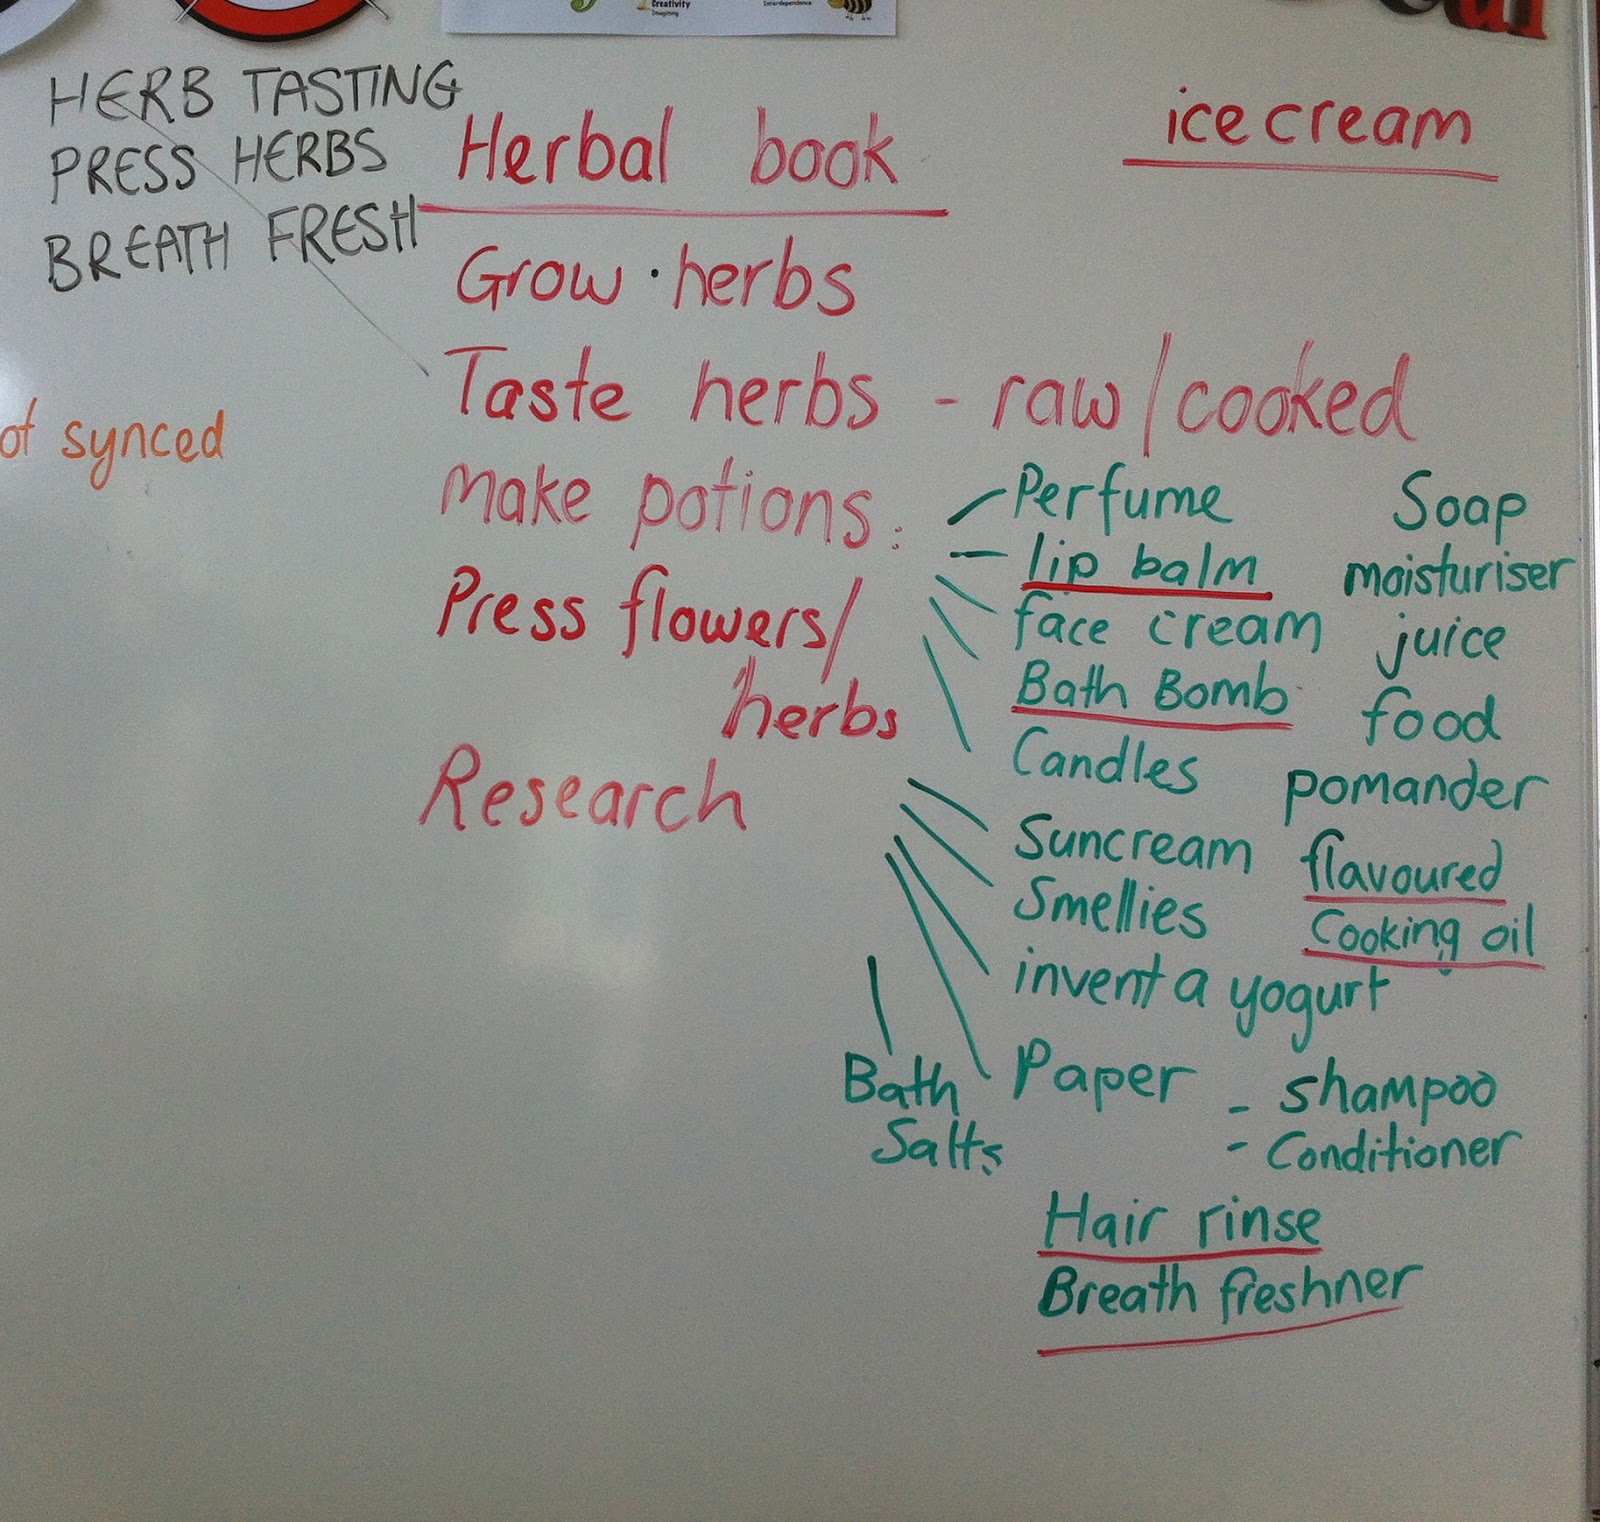 Creativity
Imagining
Interdependence
HERB TASTING
PRESS HERBS
BREATH FRESH
of synced
Herbal book
Grow · herbs
Taste herbs - raw/cooked
Make potions:
Press flowers/
herbs
Research
ice cream
Perfume
lip balm
face cream
Bath Bomb
Candles
Suncream
Smellies
invent a yogurt
Paper
Bath
Salts
Soap
moisturiser
juice
food
pomander
flavoured
Cooking oil
- shampoo
- Conditioner
Hair rinse
Breath freshner